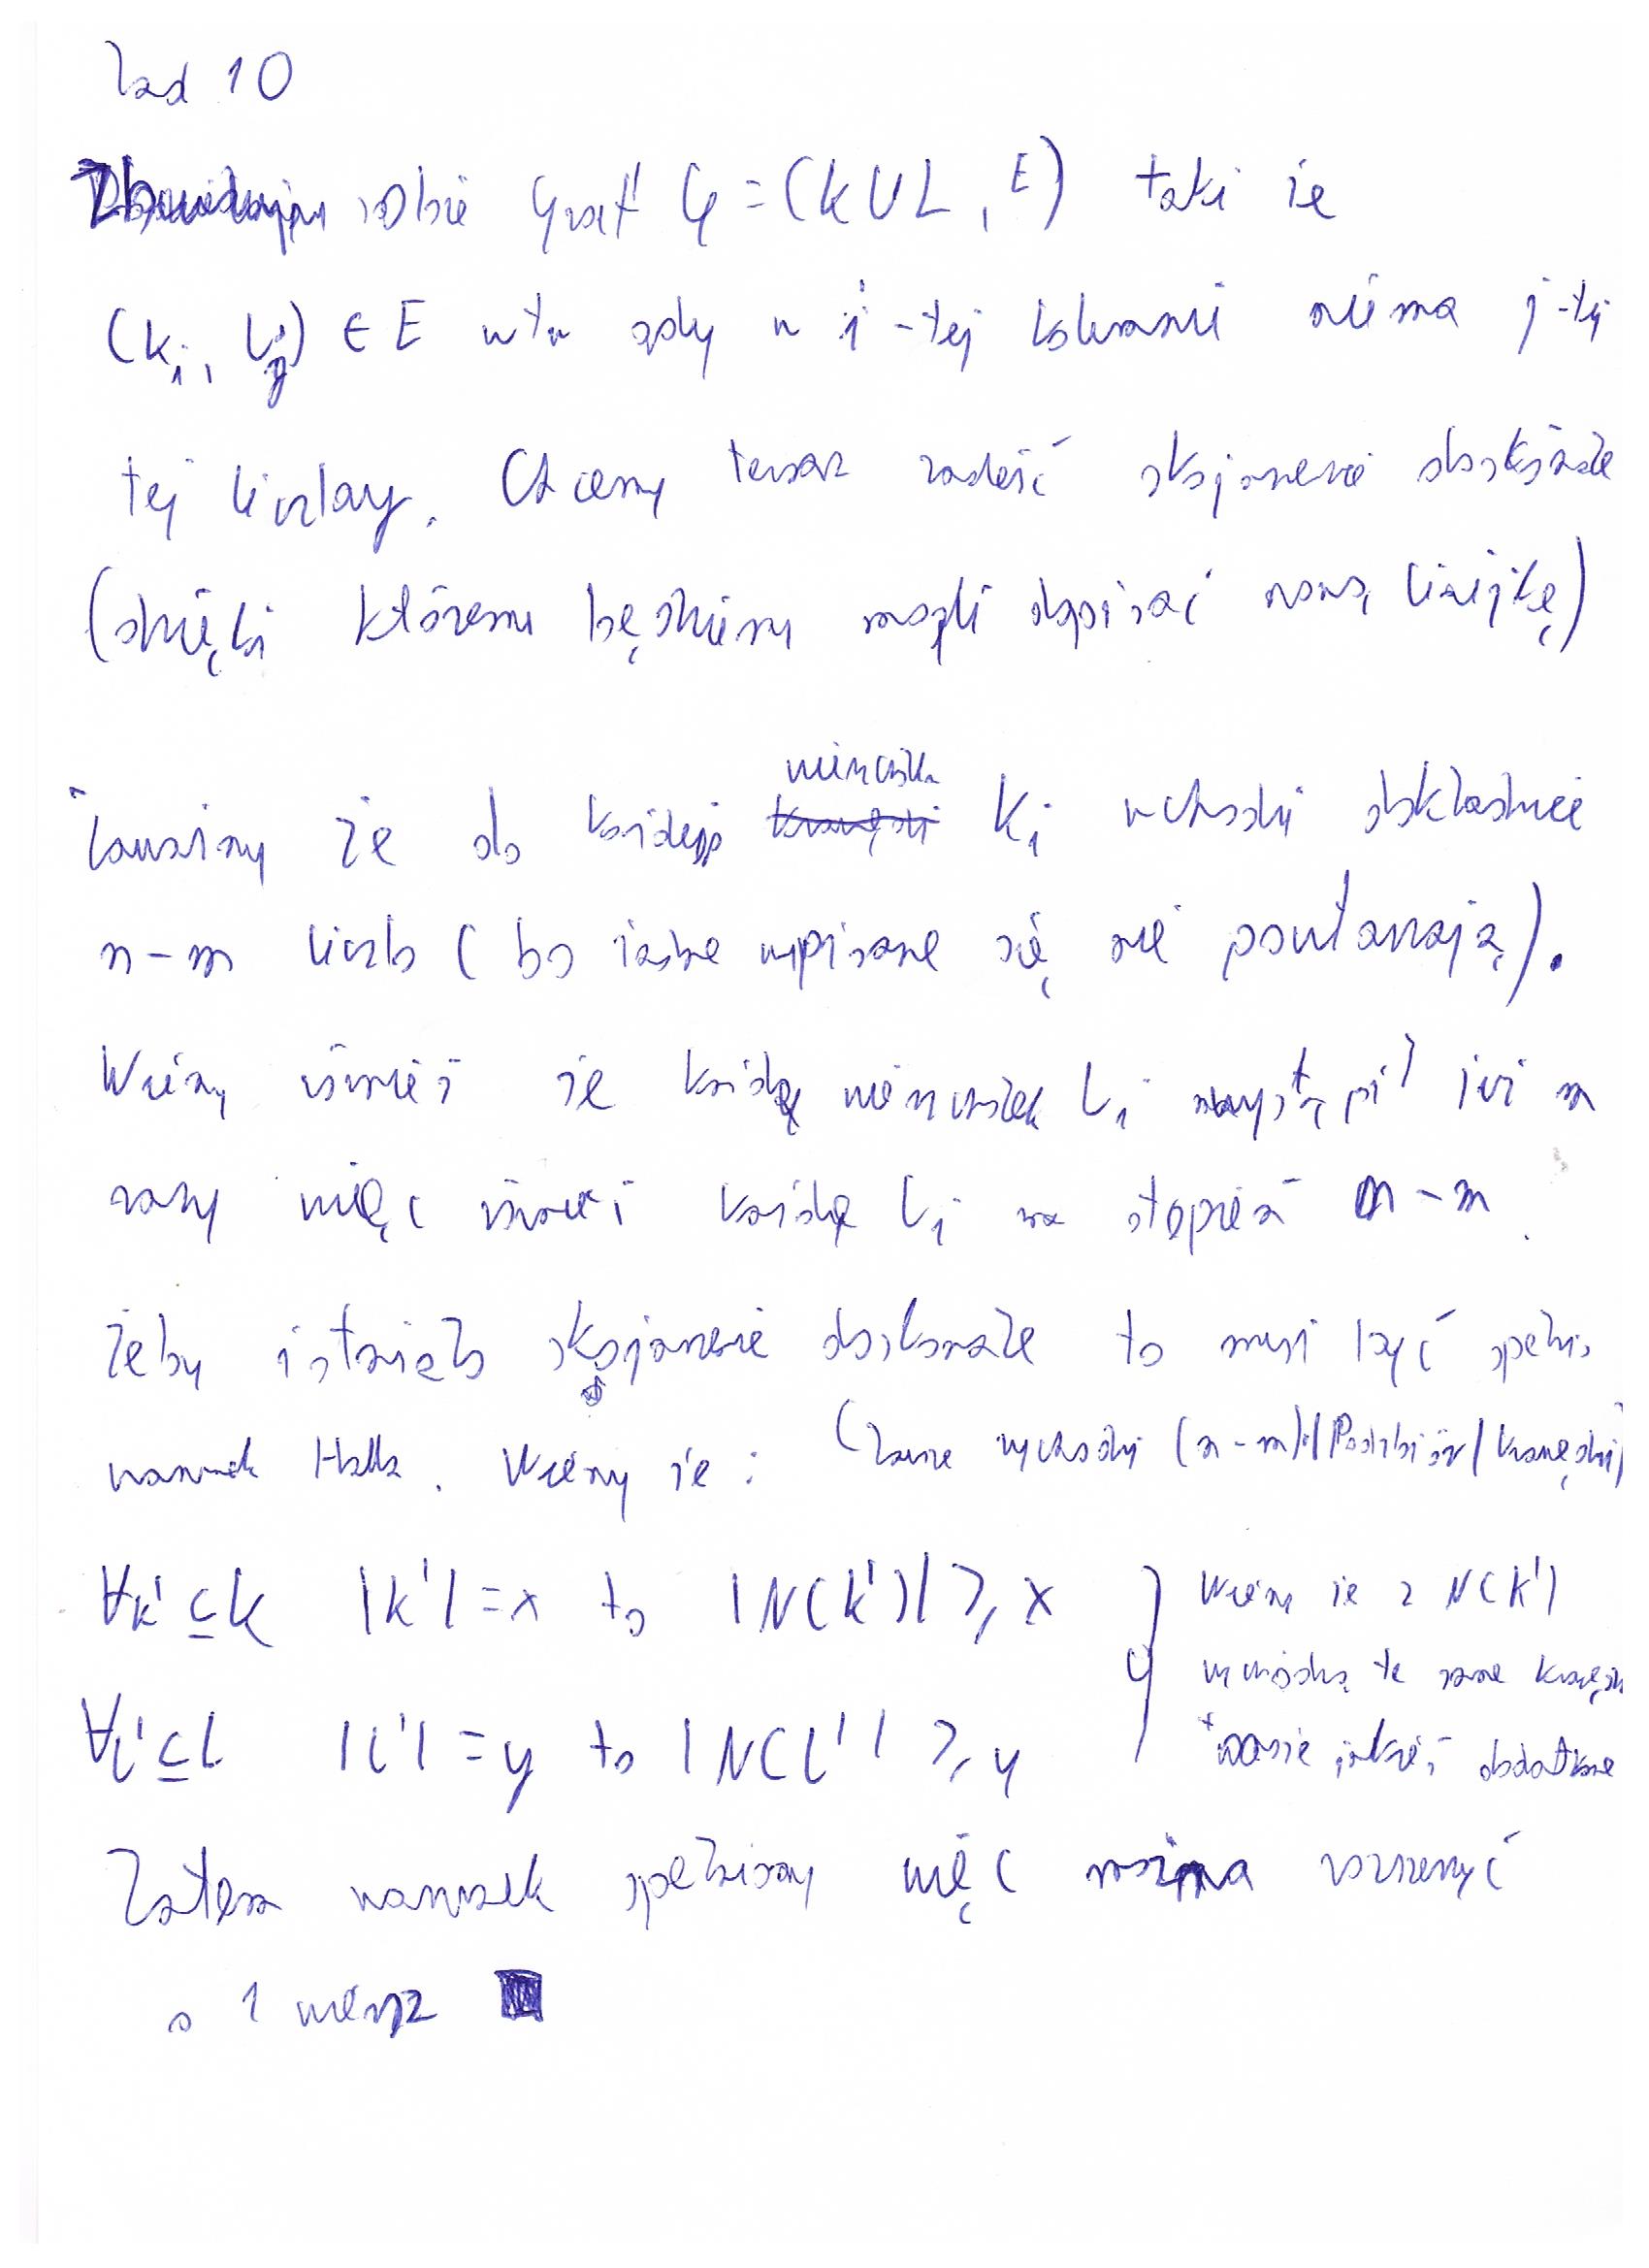 Zad 10
Zbudujmy sobie graf G = (K ∪ L, E) taki że
(k_i, l_j) ∈ E wtw gdy w i-tej kolumnie nie ma j-tej
tej liczby. Chcemy teraz znaleść skojarzenie doskonałe
(dzięki któremu będziemy mogli dopisać nową linijkę)
Zauważmy że do każdego wierzchołka K_i wchodzi dokładnie
n-m liczb (bo żadne wpisane się nie powtarzają).
Wiemy również że każdy wierzchołek L_i wystąpił już m
razy więc również każdy L_i ma stopień n-m.
Żeby istniało skojarzenie doskonałe to musi być spełn.
warunek Halla. Wiemy że: (Zawsze wychodzi (n-m)·|Podzbiór| krawędzi)
∀k' ⊆ K |k'| = x to |N(k')| ≥ x } Wiemy że z N(k')
∀l' ⊆ L |l'| = y to |N(l'| ≥ y wychodzą te same krawędzie
+ może jakieś dodatkowe
Zatem warunek spełniony więc można rozszerzyć
o 1 wiersz